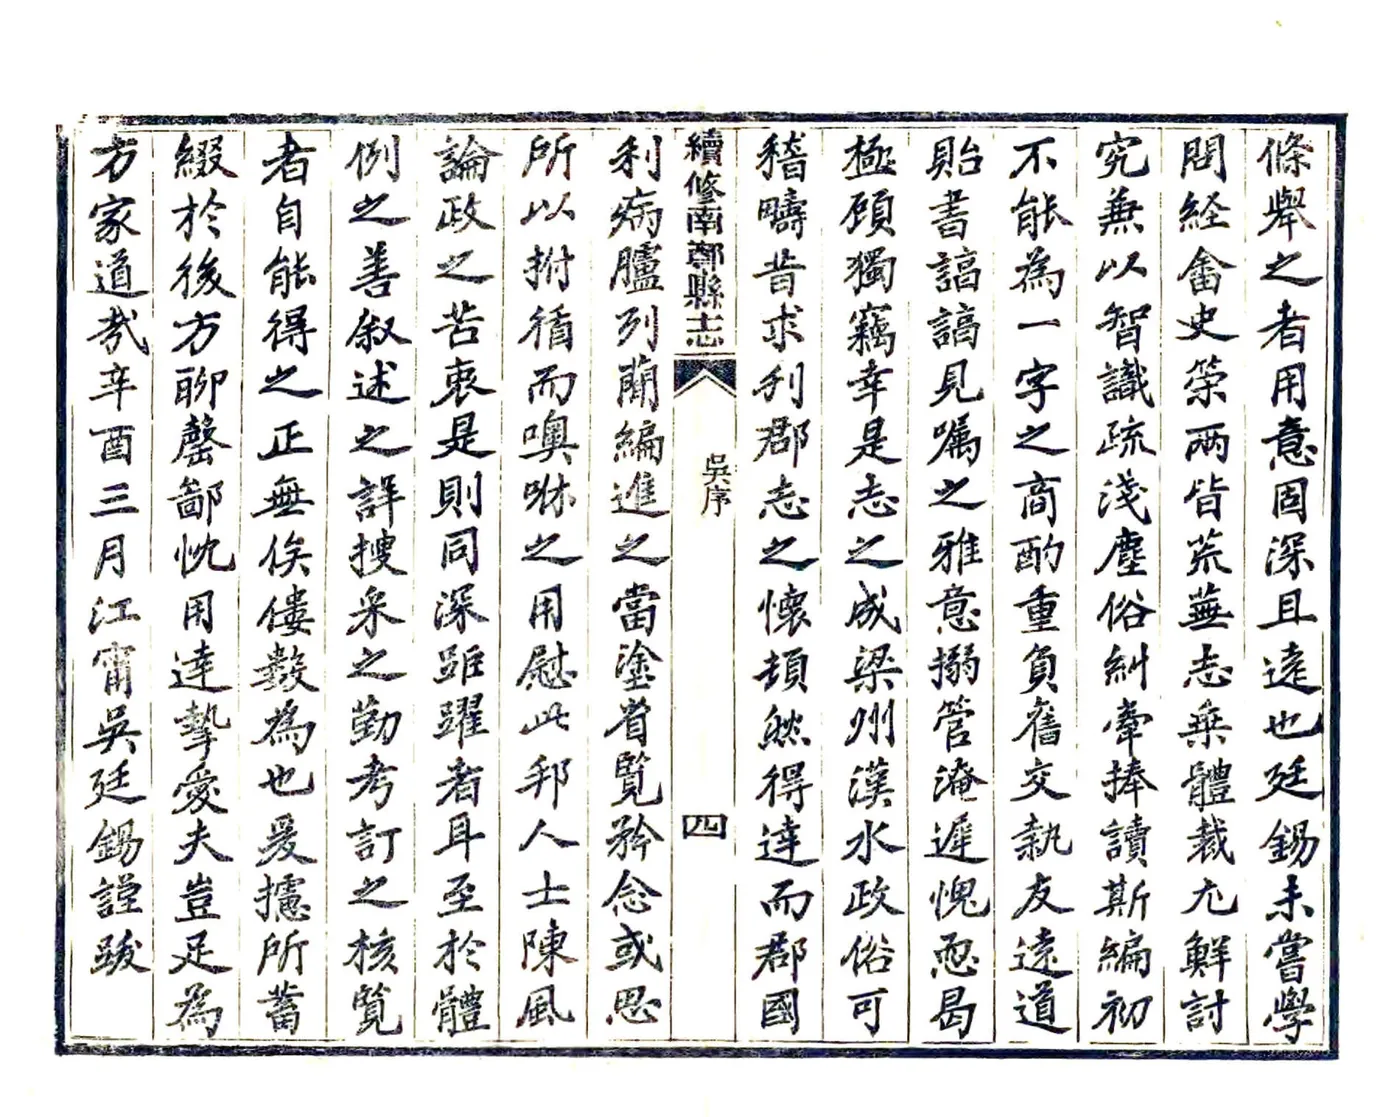 條舉之者用意固深且遠也廷錫未嘗學
問經畬史築兩皆荒蕪志乘體裁尤鮮討
究兼以智識疏淺塵俗糾牽捧讀斯編初
不能為一字之商酌重負舊交執友遠道
貽書諄諄見嘱之雅意搦管淹遲愧恧曷
極顧獨竊幸是志之成梁州漢水政俗可
稽疇昔求刋郡志之懷頓然得達而郡國
續修南鄭縣志
吳序
四
利病臚列蘭編進之當塗省覧矜念或思
所以拊循而噢咻之用慰此邦人士陳風
論政之苦衷是則同深踴躍者耳至於體
例之善叙述之詳搜采之勤考訂之核覧
者自能得之正無俟僂數為也爰攄所蓄
綴於後方聊罄鄙忱用達摯愛夫豈足為
方家道哉辛酉三月江甯吳廷錫謹跋